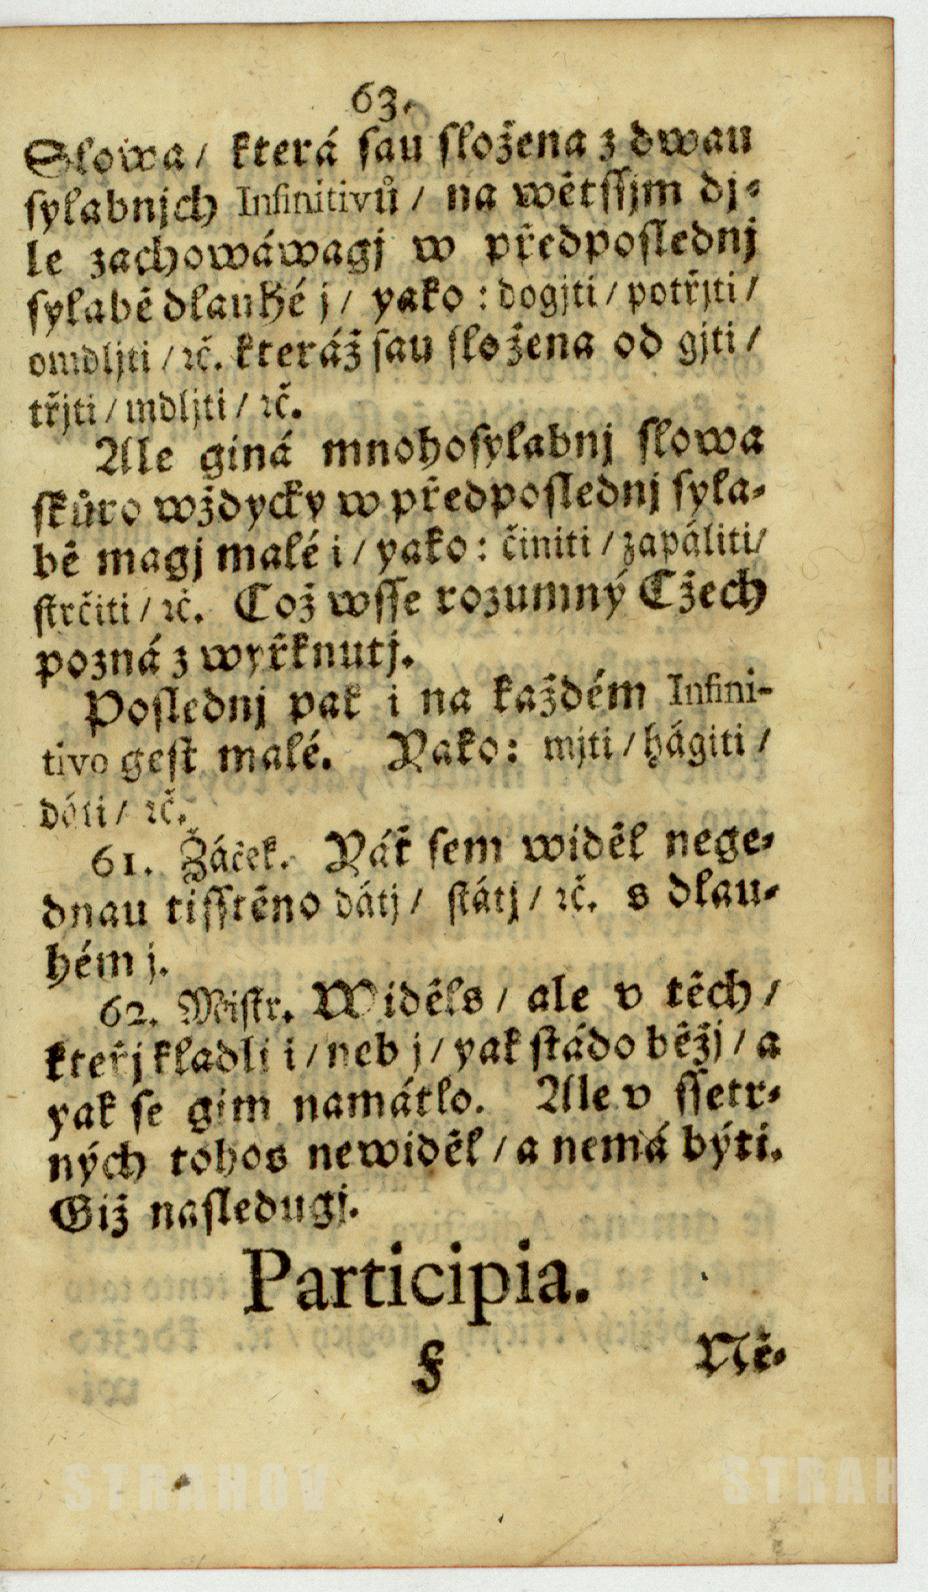 63.
Slowa / která sau složena z dwau
sylabnjch Infinitivů / na wětssjm dj-
le zachowáwagj w předposlednj
sylabě dlauhé j / yako : dogjti / potřjti /
omdljti / ꝛč. kteráž sau složena od gjti /
třjti / mdljti / ꝛč.
Ale giná mnohosylabnj slowa
skůro wždycky w předposlednj syla-
bě magj malé i / yako : činiti / zapáliti /
strčiti / ꝛč. Což wsse rozumný Cžech
pozná z wyřknutj.
Poslednj pak i na každém Infini-
tivo gest malé. Yako : mjti / hágiti /
dáti / ꝛč.
61. Žáček. Yáť sem widěl nege-
dnau tisstěno dátj / státj / ꝛč. s dlau-
hém j.
62. Mistr. Widěls / ale v těch /
kteřj kladli i / neb j / yak stádo běžj / a
yak se gim namátlo. Ale v ssetr-
ných tohos newiděl / a nemá býti.
Giž nasledugj.
Participia.
F Ně-
STRAHOV STRAH